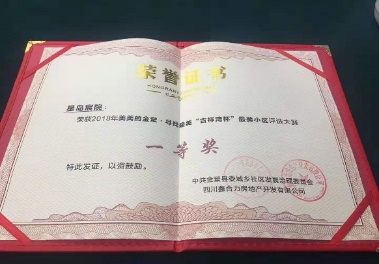 荣誉证书
星岛宸院:
荣获2018年美美的金堂·寻找最美"吉祥湾杯"最美小区评选大赛
一等奖
特此发证,以资鼓励。
中共金堂县委城乡社区发展治理委员会
四川鑫合力房地产开发有限公司